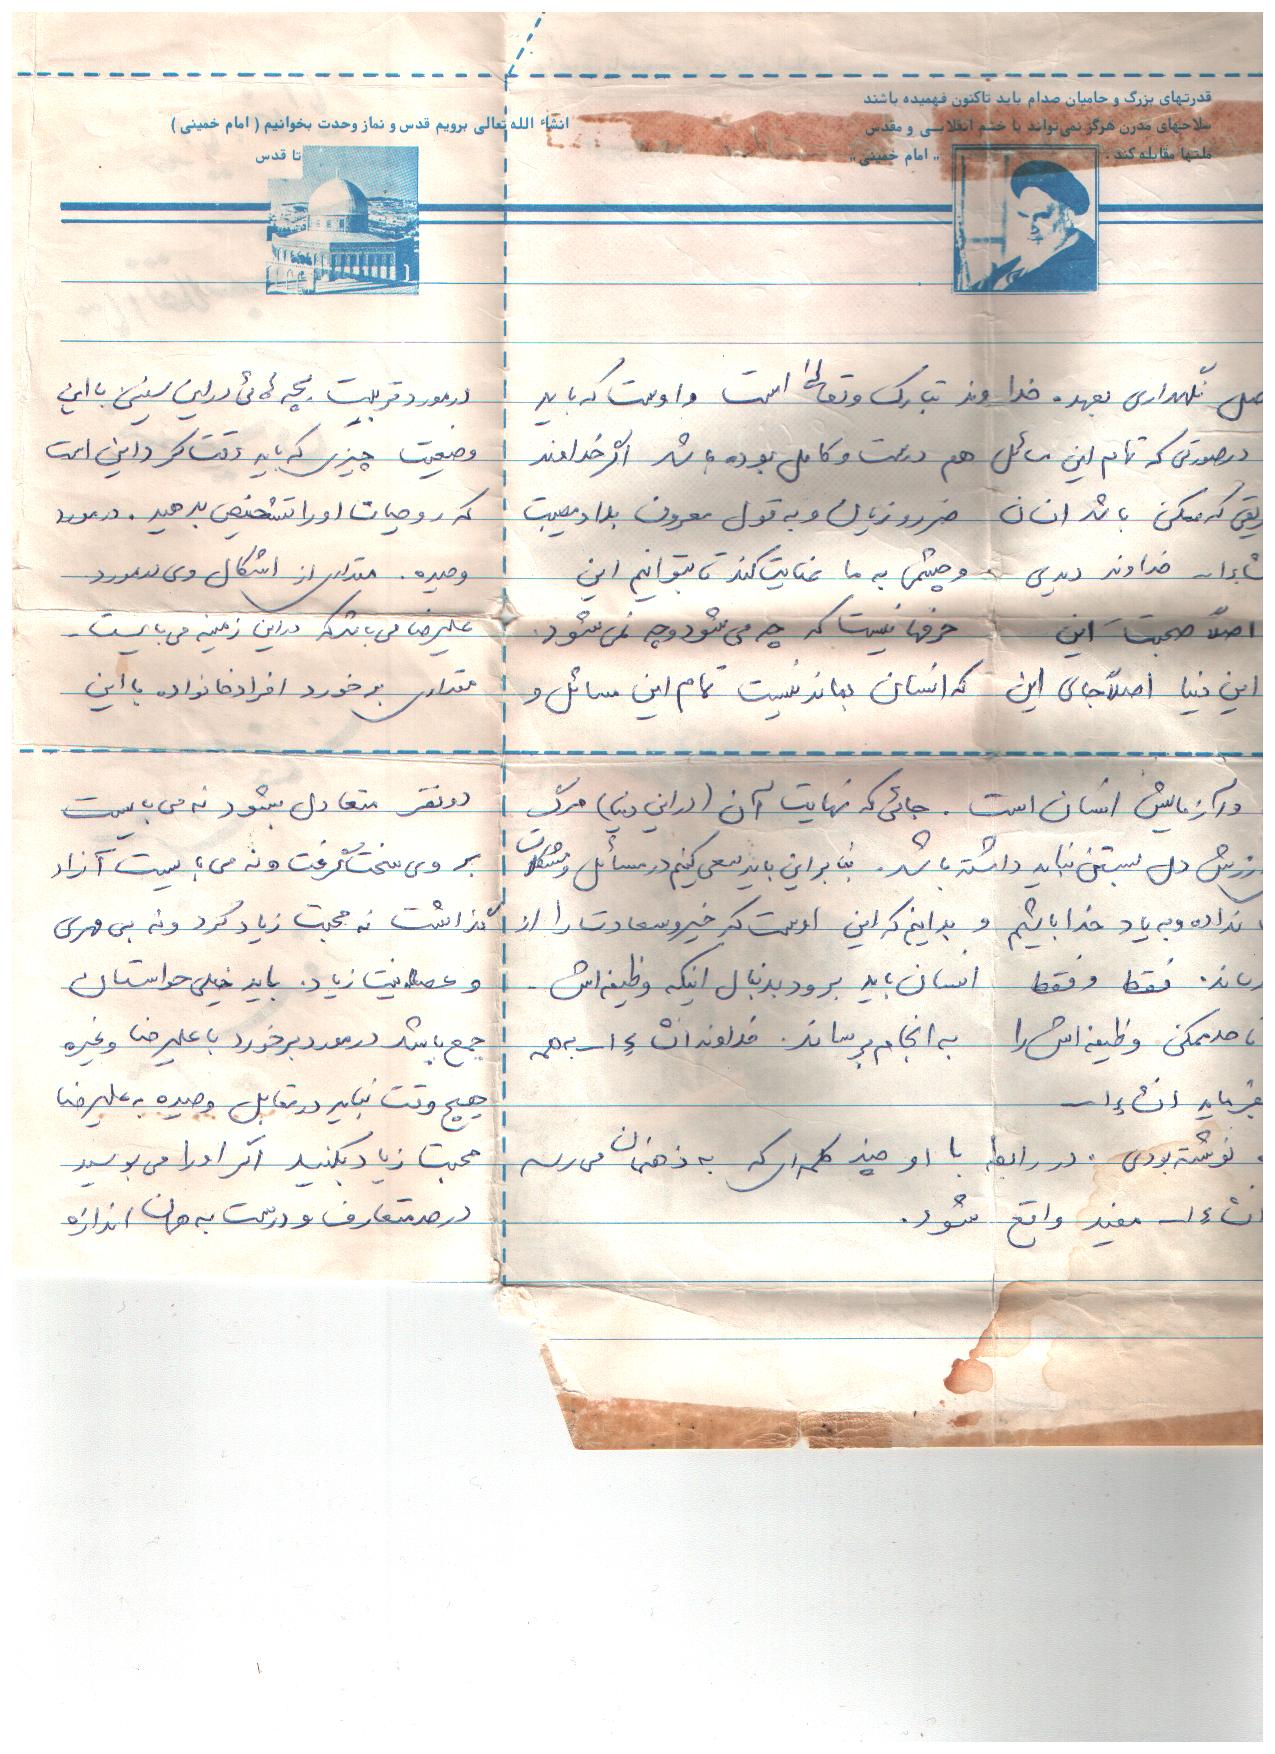 قدرتهای بزرگ و حامیان صدام باید تاکنون فهمیده باشند
سلاحهای مدرن هرگز نمی‌تواند با خشم انقلابی و مقدس
ملتها مقابله کند. «امام خمینی»
نگهداری بعهده خداوند تبارک وتعالی است و اوست که باید
درصورتی که تمام این مسائل هم درست و کامل بوده باشد اگر خداوند
که ممکن باشد انسان ضرر و زیان و به قول معروف بلا و مصیبت
خداوند دیدی و چشمی به ما عنایت کند تا بتوانیم این
اصلاً صحبت این حرفها نیست که چه می‌شود و چه نمی‌شود.
این دنیا اصلاً جای این که انسان بماند نیست تمام این مسائل و
و آزمایش انسان است. جائی که نهایت آن (در این دنیا) مرگ
ارزش دل بستن نباید داشته باشد. بنابراین باید سعی کنیم در مسائل و مشکلات
نداده و به یاد خدا باشیم و بدانیم که این اوست که خیر و سعادت را از
فقط و فقط انسان باید برود بدنبال اینکه وظیفه‌اش
تا حد ممکن وظیفه‌اش را به انجام برساند. خداوند انشاءا... به همه
بفرماید انشاءا...
نوشته بودی. در رابطه با او چند کلمه‌ای که به ذهنمان می‌رسد
انشاءا... مفید واقع شود.
انشاء الله تعالی برویم قدس و نماز وحدت بخوانیم (امام خمینی)
تا قدس
در مورد تربیت بچه‌هائی در این سنین با این
وضعیت چیزی که باید دقت کرد این است
که روحیات او را تشخیص بدهید. در مورد
وحیده. مقداری از اشکال وی در مورد
علیرضا می‌باشد که در این زمینه می‌بایست
مقداری برخورد افراد خانواده با این
دو نفر متعادل بشود نه می‌بایست
بر وی سخت گرفت و نه می‌بایست آزاد
گذاشت نه محبت زیاد کرد و نه بی مهری
و عصبانیت زیاد. باید خیلی حواستان
جمع باشد در مورد برخورد با علیرضا و غیره
هیچ وقت نباید در مقابل وحیده به علیرضا
محبت زیاد بکنید اگر او را می‌بوسید
در حد متعارف و درست به همان اندازه